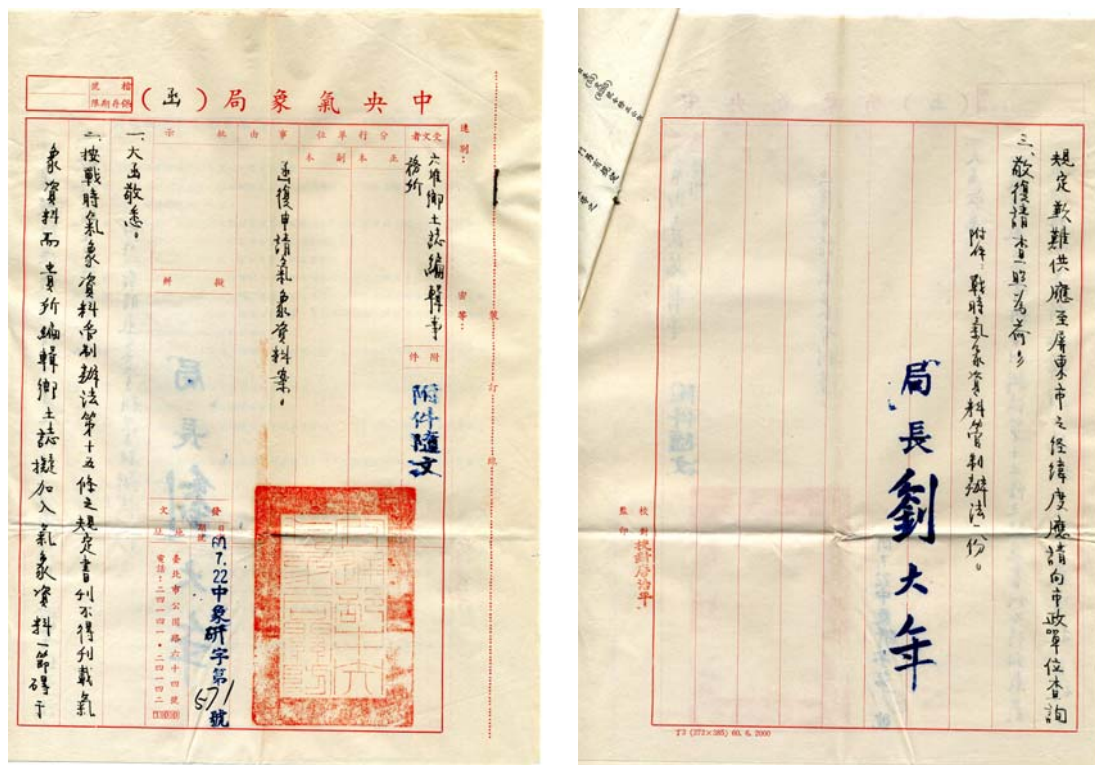 中央氣象局（函）
檔號
保存期限
速別：
密等：
裝
訂
線
受文者
六堆鄉土誌編輯事
務所
附件
附件隨文
分行單位
正本
副本
事由
函復申請氣象資料案。
批示
擬辦
發文
日期
字號
7.22中象研字第571號
地址
臺北市公園路六十四號
電話：二四一四一・二四一四二
一、大函敬悉。
二、按戰時氣象資料管制辦法第十五條之規定書刊不得刊載氣
象資料而貴所編輯鄉土誌擬加入氣象資料一節礙于
規定歉難供應至屏東市之經緯度應請向市政單位查詢
三、敬復請查照為荷
附件：戰時氣象資料管制辦法一份。
局長劉大年
校對
監印
T2 (272×385) 60. 6. 2000